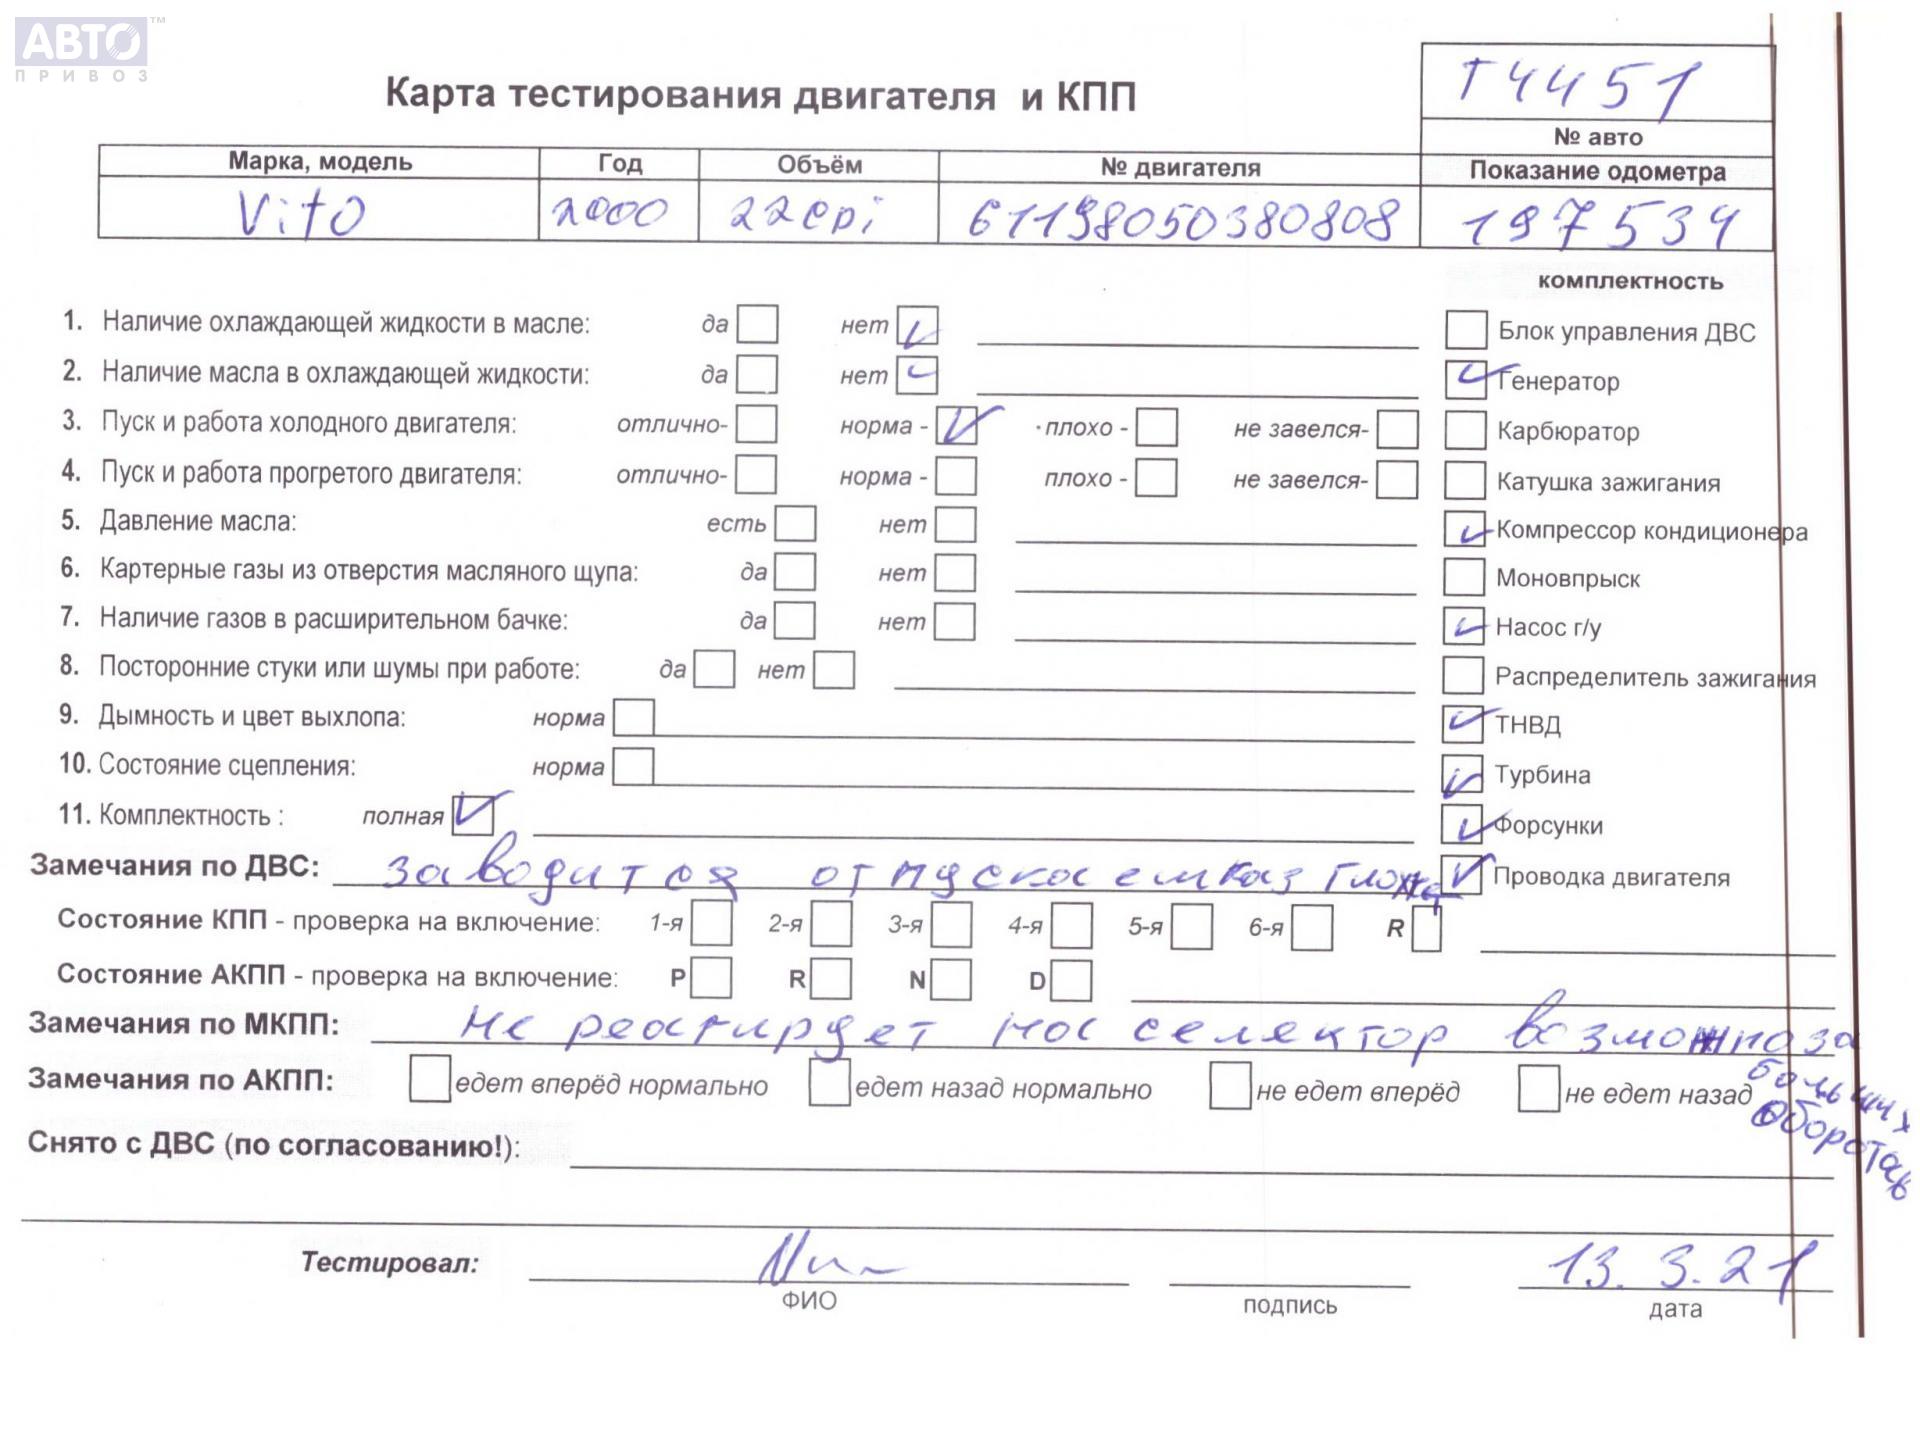 АВТО™
ПРИВОЗ
Карта тестирования двигателя и КПП
Т4451
№ авто
Марка, модель Год Объём № двигателя Показание одометра
Vito 2000 22cDi 61198050380808 197534
комплектность
1. Наличие охлаждающей жидкости в масле: да нет Блок управления ДВС
2. Наличие масла в охлаждающей жидкости: да нет Генератор
3. Пуск и работа холодного двигателя: отлично- норма - плохо - не завелся- Карбюратор
4. Пуск и работа прогретого двигателя: отлично- норма - плохо - не завелся- Катушка зажигания
5. Давление масла: есть нет Компрессор кондиционера
6. Картерные газы из отверстия масляного щупа: да нет Моновпрыск
7. Наличие газов в расширительном бачке: да нет Насос г/у
8. Посторонние стуки или шумы при работе: да нет Распределитель зажигания
9. Дымность и цвет выхлопа: норма ТНВД
10. Состояние сцепления: норма Турбина
11. Комплектность : полная Форсунки
Замечания по ДВС: заводится отпускаем газ глохнет Проводка двигателя
Состояние КПП - проверка на включение: 1-я 2-я 3-я 4-я 5-я 6-я R
Состояние АКПП - проверка на включение: P R N D
Замечания по МКПП: не реагирует на селектор возможно за
больших
оборотах
Замечания по АКПП: едет вперёд нормально едет назад нормально не едет вперёд не едет назад
Снято с ДВС (по согласованию!):
Тестировал: 13.3.21
ФИО подпись дата